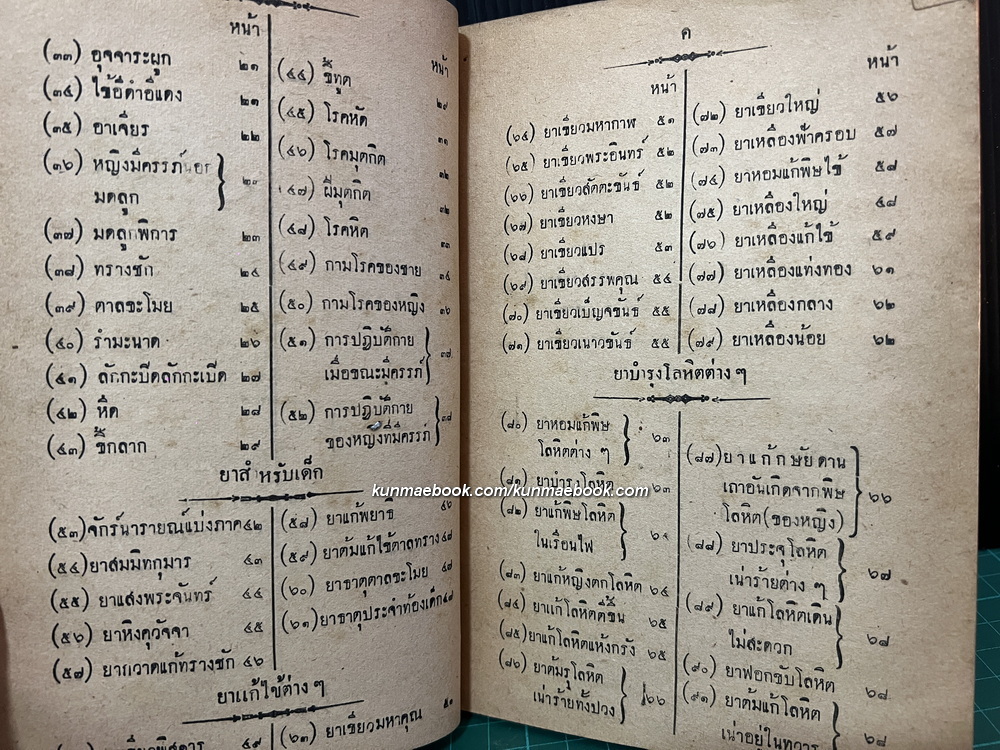 หน้า
(๓๓) อุจจาระผูก ๒๑
(๓๔) ไข้อีดำอีแดง ๒๑
(๓๕) อาเจียร ๒๒
(๓๖) หญิงมีครรภ์
มดลูก
(๓๗) มดลูกพิการ ๒๓
(๓๘) ทรางชัก ๒๔
(๓๙) ตาลขะโมย ๒๕
(๔๐) รำมะนาด ๒๖
(๔๑) ลักกะปิดลักกะเปิด ๒๗
(๔๒) หืด ๒๘
(๔๓) ขี้กลาก ๒๙
หน้า
(๔๔) ขี้ทูต ๒๙
(๔๕) โรคหัด ๓๑
(๔๖) โรคมุตกิต ๓๒
(๔๗) ฝีมุตกิต ๓๒
(๔๘) โรคหิด ๓๓
(๔๙) กามโรคของชาย ๓๔
(๕๐) กามโรคของหญิง ๓๖
(๕๑) การปฏิบัติกาย
เมื่อขณะมีครรภ์ ๓๗
(๕๒) การปฏิบัติกาย
ของหญิงที่มีครรภ์ ๓๘
ยาสำหรับเด็ก
(๕๓) จักร์นารายณ์แบ่งภาค ๔๒
(๕๔) ยาสมมิทกุมาร ๔๓
(๕๕) ยาแสงพระจันทร์ ๔๔
(๕๖) ยาหิงคุวัจจา ๔๕
(๕๗) ยากวาดแก้ทรางชัก ๔๖
(๕๘) ยาแก้พยาธ ๔๖
(๕๙) ยาต้มแก้ไข้ตาลทราง ๔๗
(๖๐) ยาธาตุตาลขะโมย ๔๗
(๖๑) ยาธาตุประจำท้องเด็ก ๔๗
ยาแก้ไข้ต่าง ๆ
๔๙
(๖๓) ยาเขียวมหาคุณ ๕๑
ค
หน้า
(๖๔) ยาเขียวมหากาฬ ๕๑
(๖๕) ยาเขียวพระอินทร์ ๕๒
(๖๖) ยาเขียวสัตตะขันธ์ ๕๒
(๖๗) ยาเขียวหงษา ๕๒
(๖๘) ยาเขียวแปร ๕๓
(๖๙) ยาเขียวสรรพคุณ ๕๔
(๗๐) ยาเขียวเบ็ญจขันธ์ ๕๕
(๗๑) ยาเขียวเนาวขันธ์ ๕๕
หน้า
(๗๒) ยาเขียวใหญ่ ๕๖
(๗๓) ยาเหลืองฟ้าครอบ ๕๗
(๗๔) ยาหอมแก้พิษไข้ ๕๘
(๗๕) ยาเหลืองใหญ่ ๕๘
(๗๖) ยาเหลืองแก้ไข้ ๕๙
(๗๗) ยาเหลืองแท่งทอง ๖๑
(๗๘) ยาเหลืองกลาง ๖๒
(๗๙) ยาเหลืองน้อย ๖๒
ยาบำรุงโลหิตต่าง ๆ
(๘๐) ยาหอมแก้พิษ
โลหิตต่าง ๆ ๖๓
(๘๑) ยาบำรุงโลหิต ๖๓
(๘๒) ยาแก้พิษโลหิต
ในเรือนไฟ
(๘๓) ยาแก้หญิงตกโลหิต ๖๔
(๘๔) ยาแก้โลหิตตีขึ้น ๖๕
(๘๕) ยาแก้โลหิตแห้งกรัง ๖๕
(๘๖) ยาต้มรุโลหิต
เน่าร้ายทั้งปวง ๖๖
(๘๗) ยาแก้กษัยดาน
เถาอันเกิดจากพิษ
โลหิต(ของหญิง) ๖๖
(๘๘) ยาประจุโลหิต
เน่าร้ายต่าง ๆ ๖๗
(๘๙) ยาแก้โลหิตเดิน
ไม่สะดวก ๖๘
(๙๐) ยาฟอกขับโลหิต ๖๘
(๙๑) ยาต้มแก้โลหิต
เน่าอยู่ในทวาร ๖๘
kunmaebook.com/kunmaebook.com